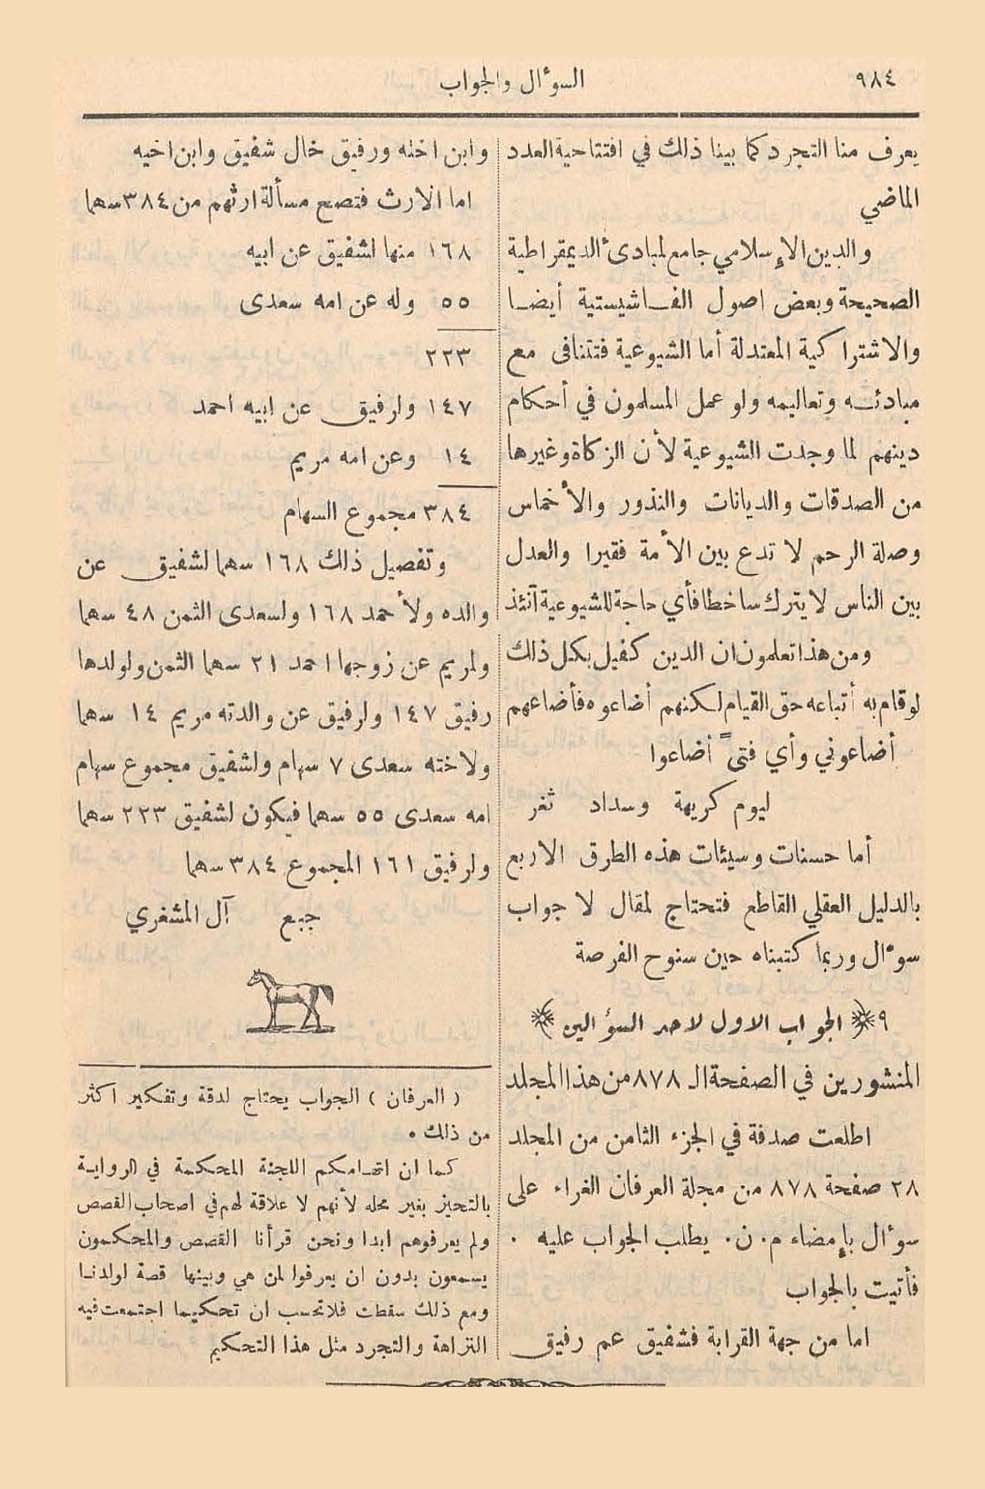 ٩٨٤
السوءال والجواب
يعرف منا التجرد كما بينا ذلك في افتتاحية العدد
الماضي
والدين الاإسلامي جامع لمبادئ الديمقراطية
الصحيحة وبعض اصول الفاشيستية أيضا
والاشتراكية المعتدلة أما الشيوعية فتتنافى مع
مبادئه وتعاليمه ولو عمل المسلمون في أحكام
دينهم لما وجدت الشيوعية لأن الزكاة وغيرها
من الصدقات والديانات والنذور والأخماس
وصلة الرحم لا تدع بين الأمة فقيرا والعدل
بين الناس لا يترك ساخطا فأي حاجة للشيوعية آنئذ
ومن هذا تعلمون ان الدين كفيل بكل ذلك
لو قام به أتباعه حق القيام لكنهم أضاعوه فأضاعهم
أضاعوني وأي فتىً أضاعوا
ليوم كريهة وسداد ثغر
أما حسنات وسيئات هذه الطرق الاربع
بالدليل العقلي القاطع فتحتاج لمقال لا جواب
سوءال وربما كتبناه حين سنوح الفرصة
٩ ﴿ الجواب الاول لاحد السؤالين ﴾
المنشورين في الصفحة الـ ٨٧٨ من هذا المجلد
اطلعت صدفة في الجزء الثامن من المجلد
٢٨ صفحة ٨٧٨ من مجلة العرفان الغراء على
سوءال بإمضاء م. ن. يطلب الجواب عليه .
فأتيت بالجواب
اما من جهة القرابة فشفيق عم رفيق
وابن اخته ورفيق خال شفيق وابن اخيه
اما الارث فتصح مسألة ارثهم من ٣٨٤ سهما
١٦٨ منها لشفيق عن ابيه
٥٥ وله عن امه سعدى
٢٢٣
١٤٧ ولرفيق عن ابيه احمد
١٤ وعن امه مريم
٣٨٤ مجموع السهام
وتفصيل ذلك ١٦٨ سهما لشفيق عن
والده ولأحمد ١٦٨ ولسعدى الثمن ٤٨ سهما
ولمريم عن زوجها احمد ٢١ سهما الثمن ولولدها
رفيق ١٤٧ ولرفيق عن والدته مريم ١٤ سهما
ولاخته سعدى ٧ سهام ولشفيق مجموع سهام
امه سعدى ٥٥ سهما فيكون لشفيق ٢٢٣ سهما
ولرفيق ١٦١ المجموع ٣٨٤ سهما
جبع آل المشغري
( العرفان ) الجواب يحتاج لدقة وتفكير اكثر
من ذلك .
كما ان اتهامكم اللجنة المحكمة في الرواية
بالتحيز بغير محله لأنهم لا علاقة لهم في اصحاب القصص
ولم يعرفوهم ابدا ونحن قرأنا القصص والمحكمون
يسمعون بدون ان يعرفوا لمن هي وبينها قصة لولدنا
ومع ذلك سقطت فلا تحسب ان تحكيما اجتمعت فيه
النزاهة والتجرد مثل هذا التحكيم